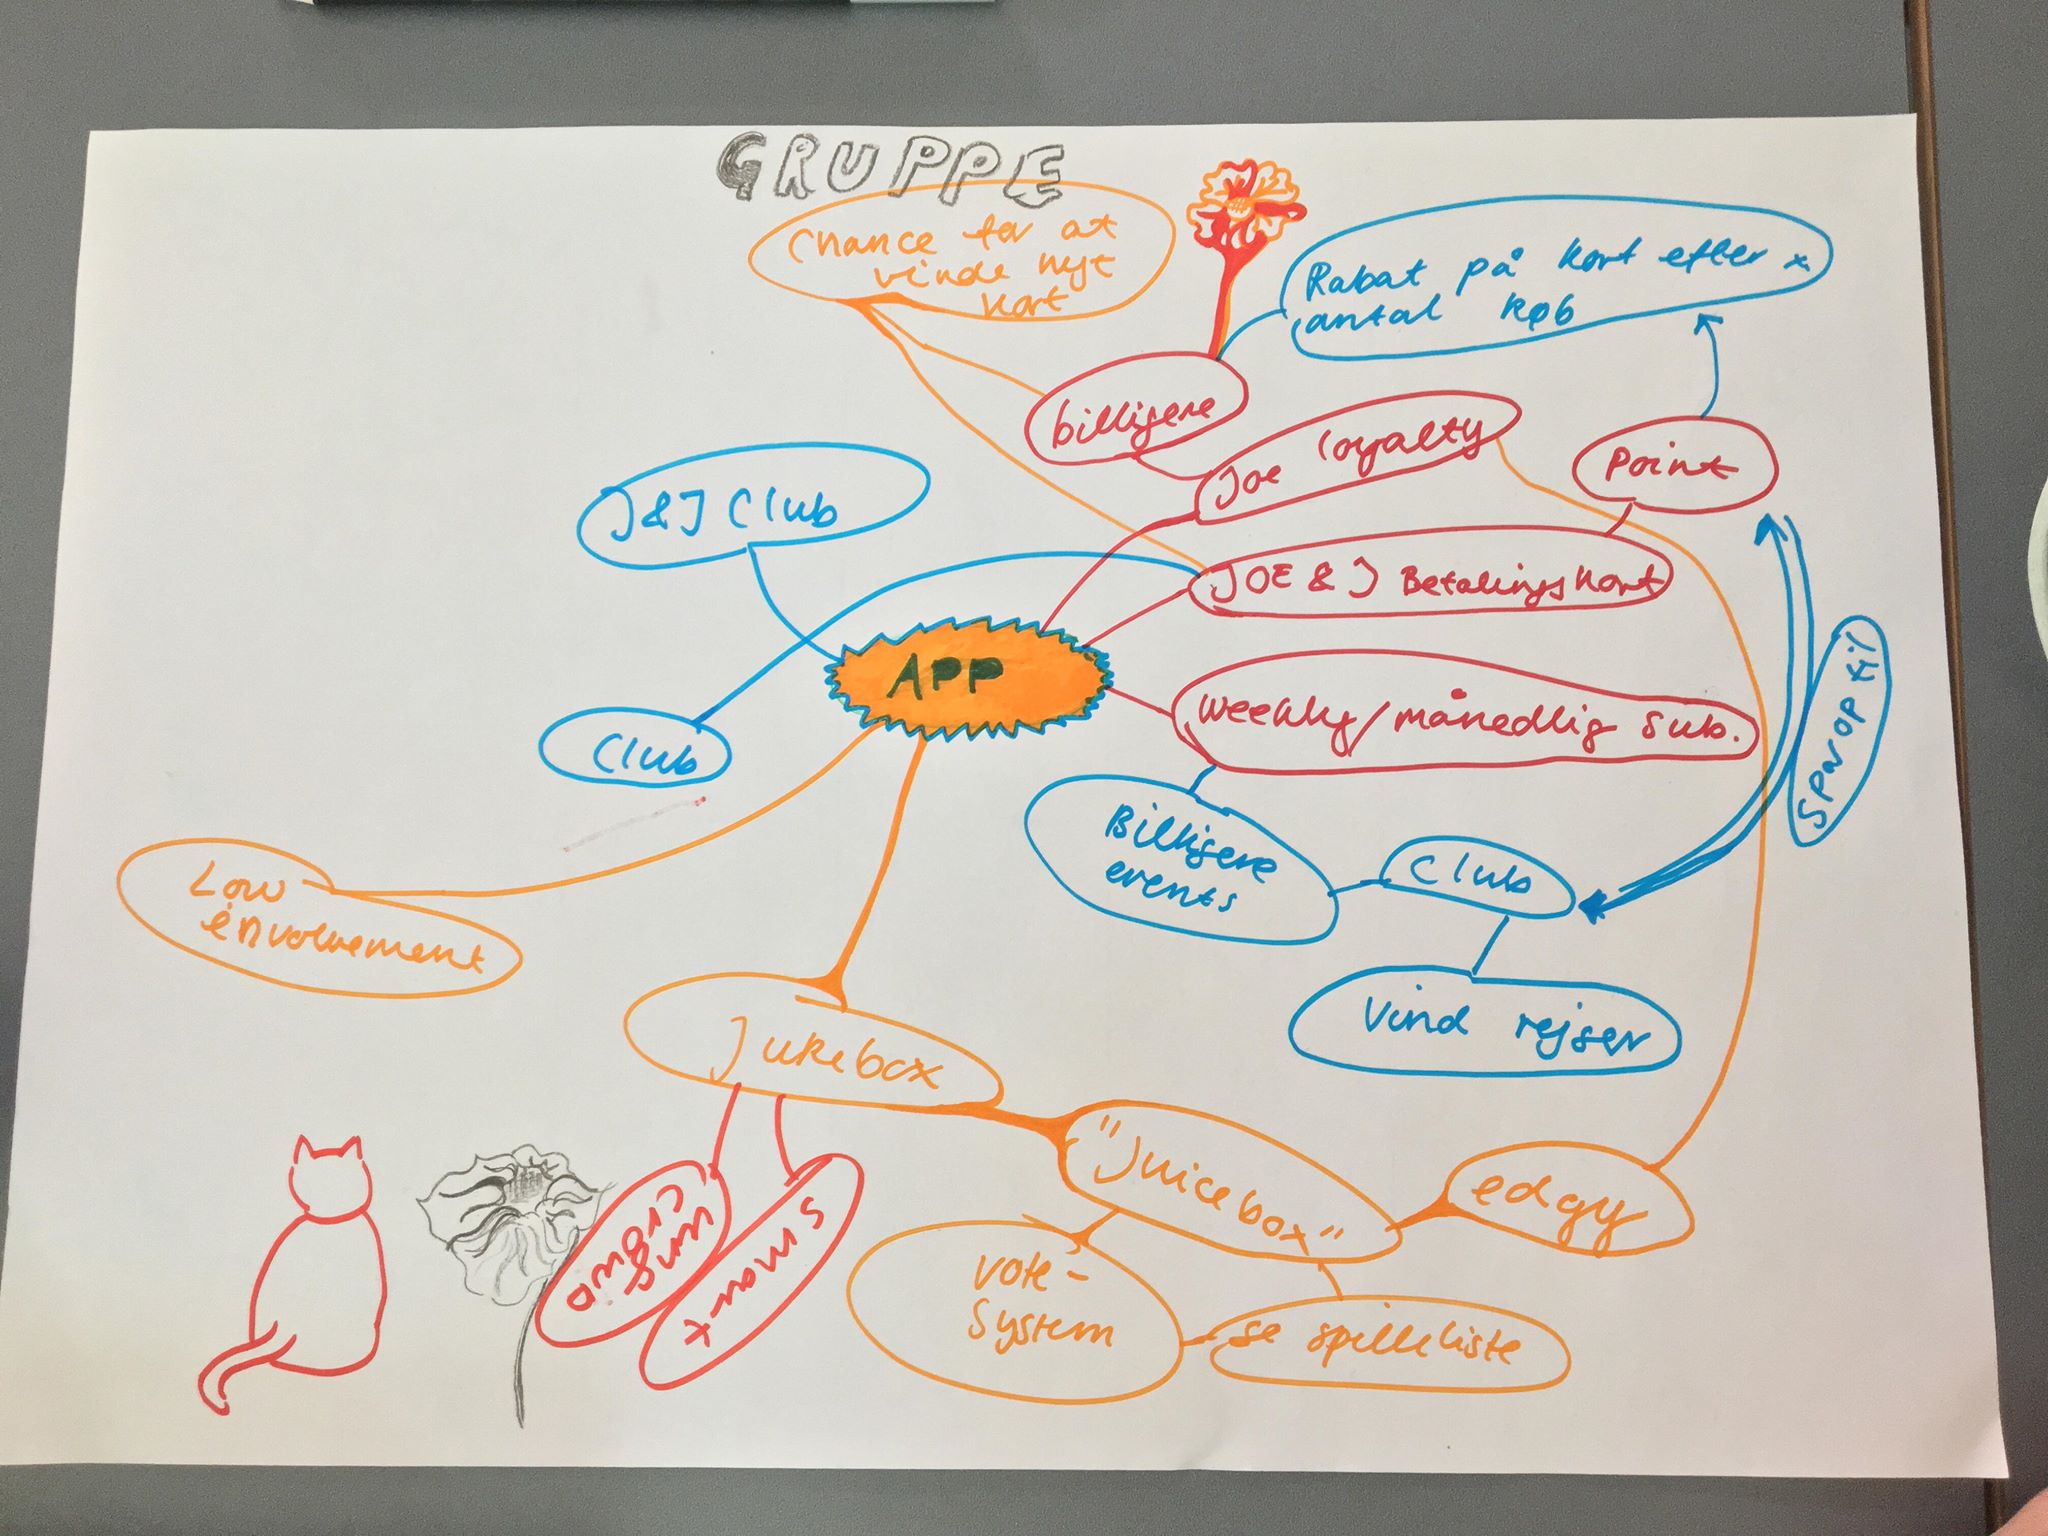 GRUPPE
Chance for at
vinde nyt
kort
Rabat på kort efter x
antal køb
billigere
Joe loyalty
point
J&J Club
JOE & J Betalingskort
APP
Spar op til
weekly/månedlig sub.
Club
Billigere
events
Club
Low
envolvement
Vind rejser
Jukebox
"Juicebox"
edgy
ung
smart
vote-
system
se spilleliste